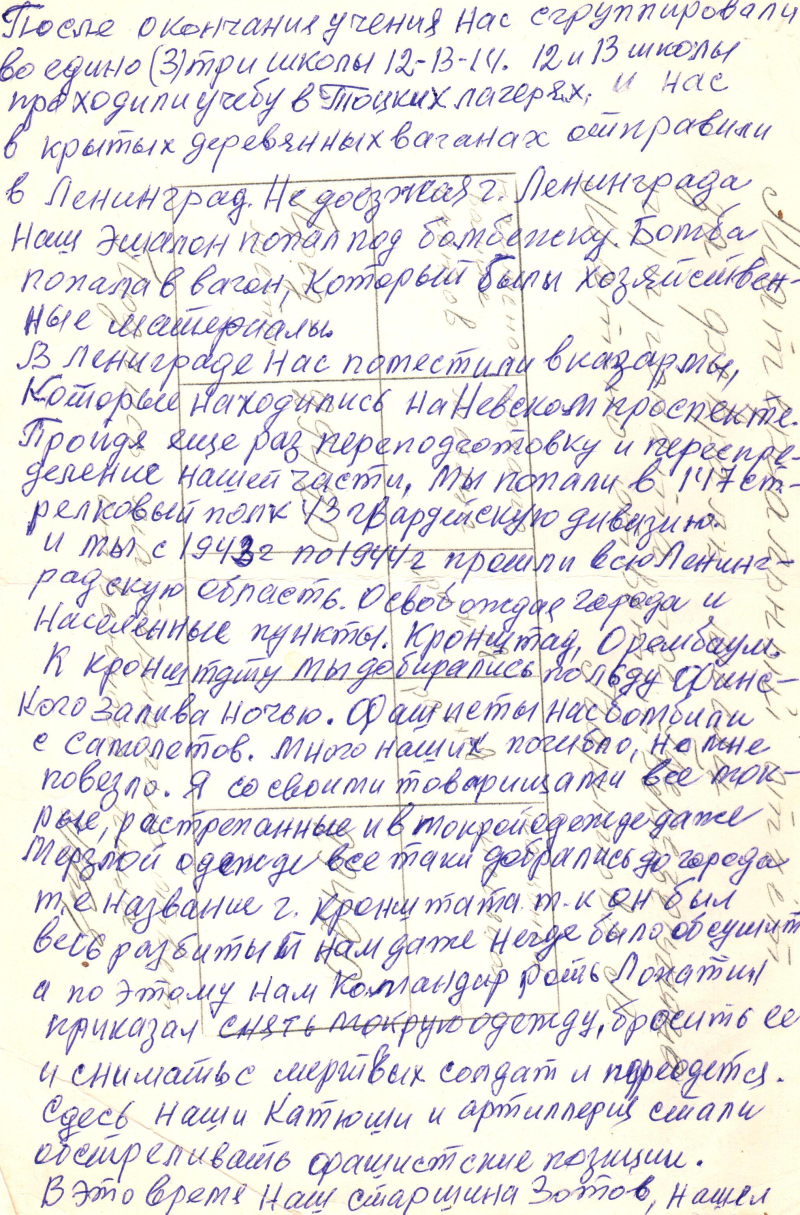 После окончания учения нас сгруппировали
во едино (3) три школы 12-13-14. 12 и 13 школы
проходили учебу в Тоцких лагерях, и нас
в крытых деревянных ваганах отправили
в Ленинград. Не доезжая г. Ленинграда
наш эшалон попал под бомбежку. Бомба
попала в вагон, который были хозяйствен-
ные материалы.
В Лениграде нас поместили в казармы,
которые находились на Невском проспекте.
Пройдя еще раз переподготовку и переспре-
деление нашей части, мы попали в 147 ст-
релковый полк 43 гвардейскую дивизию.
и мы с 1943 г по 1944 г прошли всю Ленинг-
радскую область. Освобождая города и
населенные пункты. Кронштад, Орембаум.
К кронштдту мы добирались по льду Финс-
кого залива ночью. Фашисты нас бомбили
с самолетов. Много наших погибло, но мне
повезло. Я со своими товарищами все мок-
рые, растрепанные и в мокрой одежде даже
мерзлой одежде все таки добрались до города
т.е название г. Кронштата. т-к он был
весь разбитый нам даже негде было обсушит
а по этому нам командир роть Лопатин
приказал снять мокрую одежду, бросить ее
и снимать с мертвых солдат и переодется.
Сдесь наши Катюши и артиллерия стали
обстреливать фашистские позиции.
В это время наш старшина Зотов, нашел